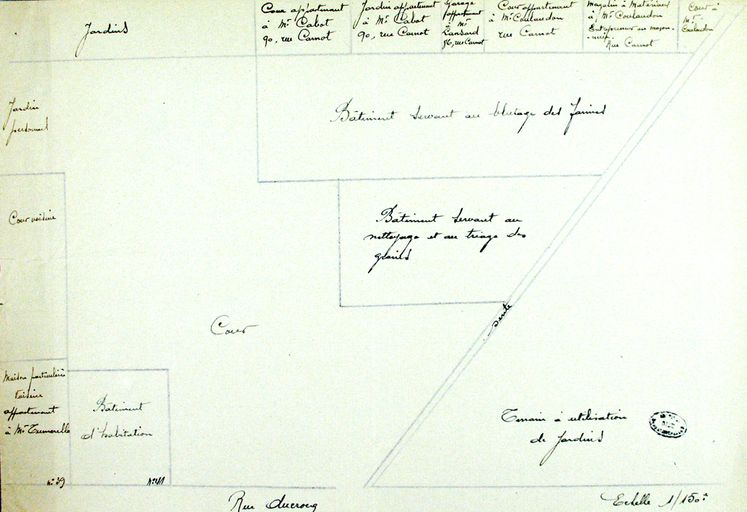 Jardins
Cour appartenant
à Mr Cabot
90, rue Carnot
Jardin appartenant
à Mr Cabot
90, rue Carnot
Garage
appartenant
à Mr
86, rue Carnot
Cour appartenant
à Mr Coulaudon
rue Carnot
Magasin à Matériaux
à Mr Coulaudon
Entrepreneur en maçon-
-nerie
Rue Carnot
Cour à
Mr
Coulaudon
Jardin
personnel
Bâtiment servant au blutage des farines
Cour voisine
Bâtiment servant au
nettoyage et au triage des
grains
Cour
sente
Maison particulière
voisine
appartenant
à Mr
n° 39
Bâtiment
d'habitation
n° 41
Terrain à utilisation
de Jardins
Rue Ducrocq
Echelle 1/150e